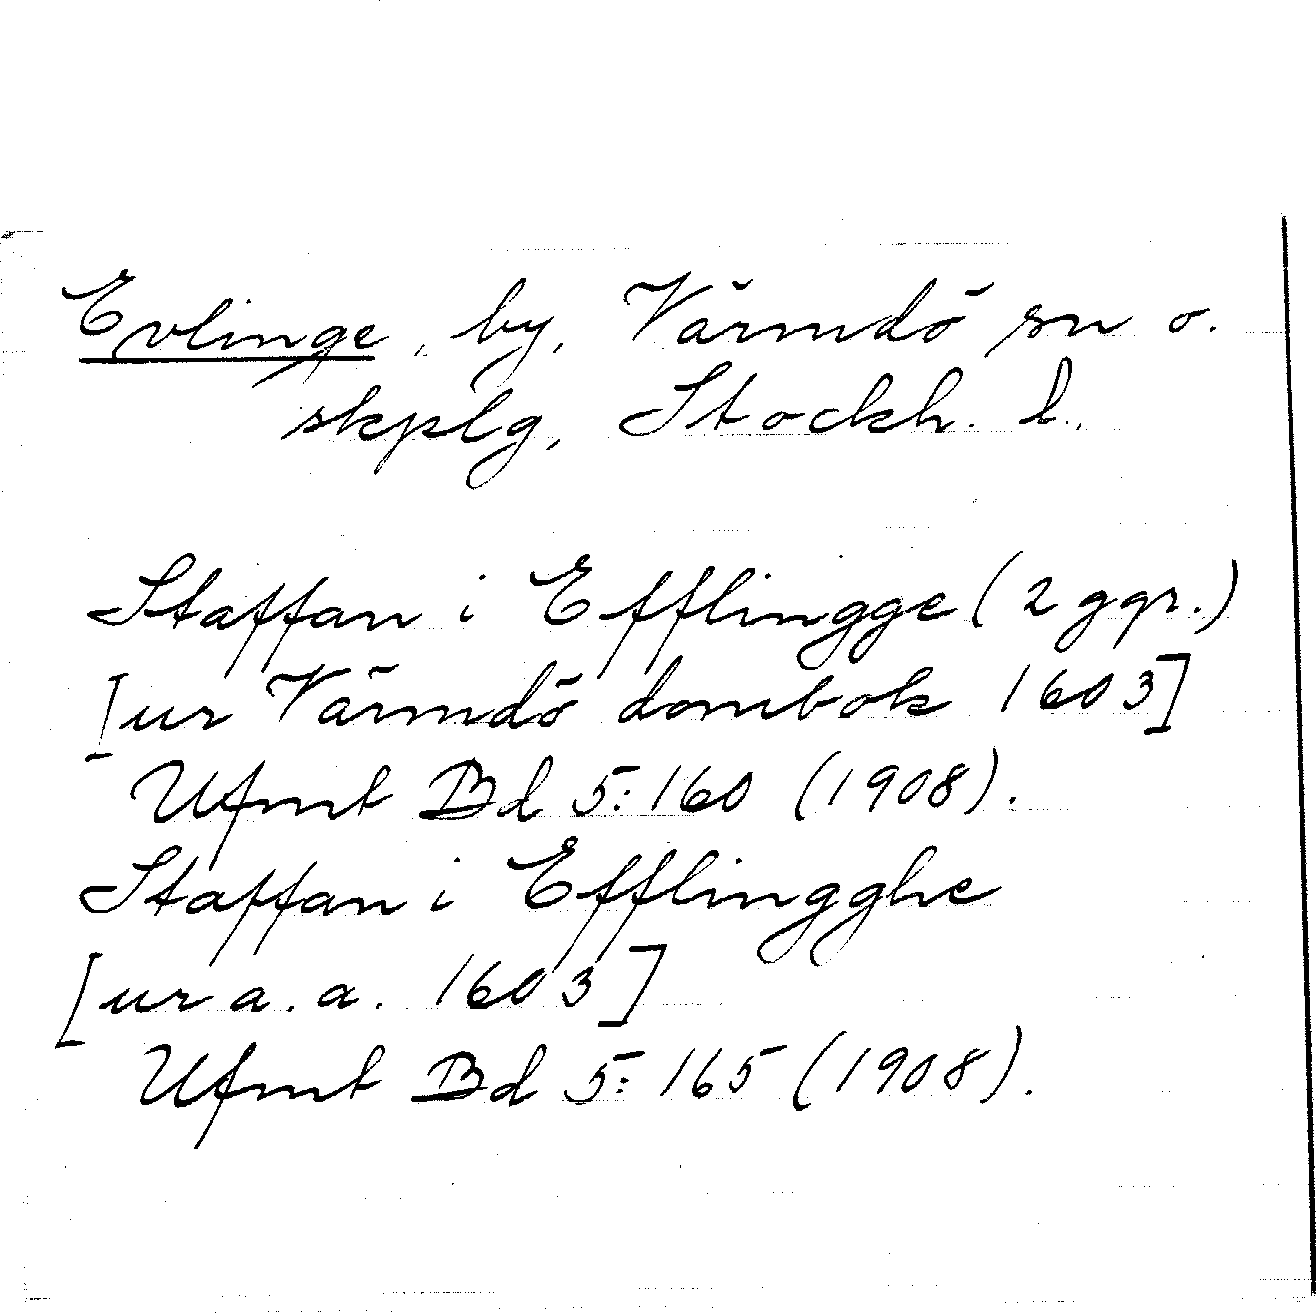 Evlinge, by, Värmdö sn o.
skplg, Stockh. l.
Staffan i Efflingge (2 ggr.)
[ur Värmdö dombok 1603]
Ufmt Bd 5:160 (1908).
Staffan i Efflingghe
[ur a.a. 1603]
Ufmt Bd 5:165 (1908).